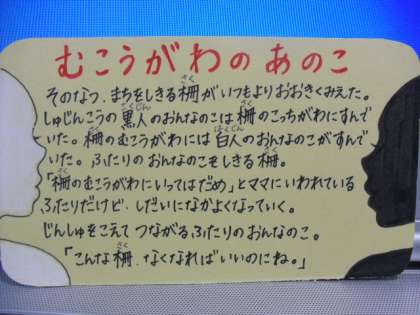 むこうがわのあのこ
そのなつ、まちをしきる柵がいつもよりおおきくみえた。
しゅじんこうの黒人のおんなのこは柵のこっちがわにすんで
いた。柵のむこうがわには白人のおんなのこがすんで
いた。ふたりのおんなのこをしきる柵。
「柵のむこうがわにいってはだめ」とママにいわれている
ふたりだけど、しだいになかよくなっていく。
じんしゅをこえてつながるふたりのおんなのこ。
「こんな柵、なくなればいいのにね。」